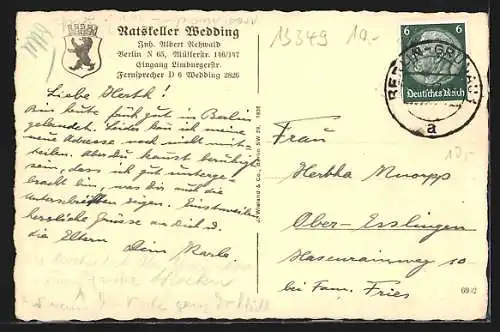 Ratskeller Wedding
Inh. Albert Rehwald
Berlin N 65, Müllerstr. 146/147
Eingang Limburgerstr.
Fernsprecher D 6 Wedding 2826
13349 10,-
6 6
Deutsches Reich
BERLIN-GRUNAU
a
Liebe Hertha!
Bin heute früh gut in Berlin
gelandet. Leider kann ich meine
neue Adresse noch nicht mit-
teilen. Aber du kannst beruhigt
sein, dass ich gut unterge-
bracht bin, was Dir auch die
Unterschriften zeigen. Einstweilen
herzliche Grüsse an Dich u.
die Eltern Dein Karle.
J. Wieland & Co., Berlin SW 29, 1936
Frau
Hertha Knorpp
Ober-Esslingen
Hasenrainweg 10
bei Fam. Fries
10,-